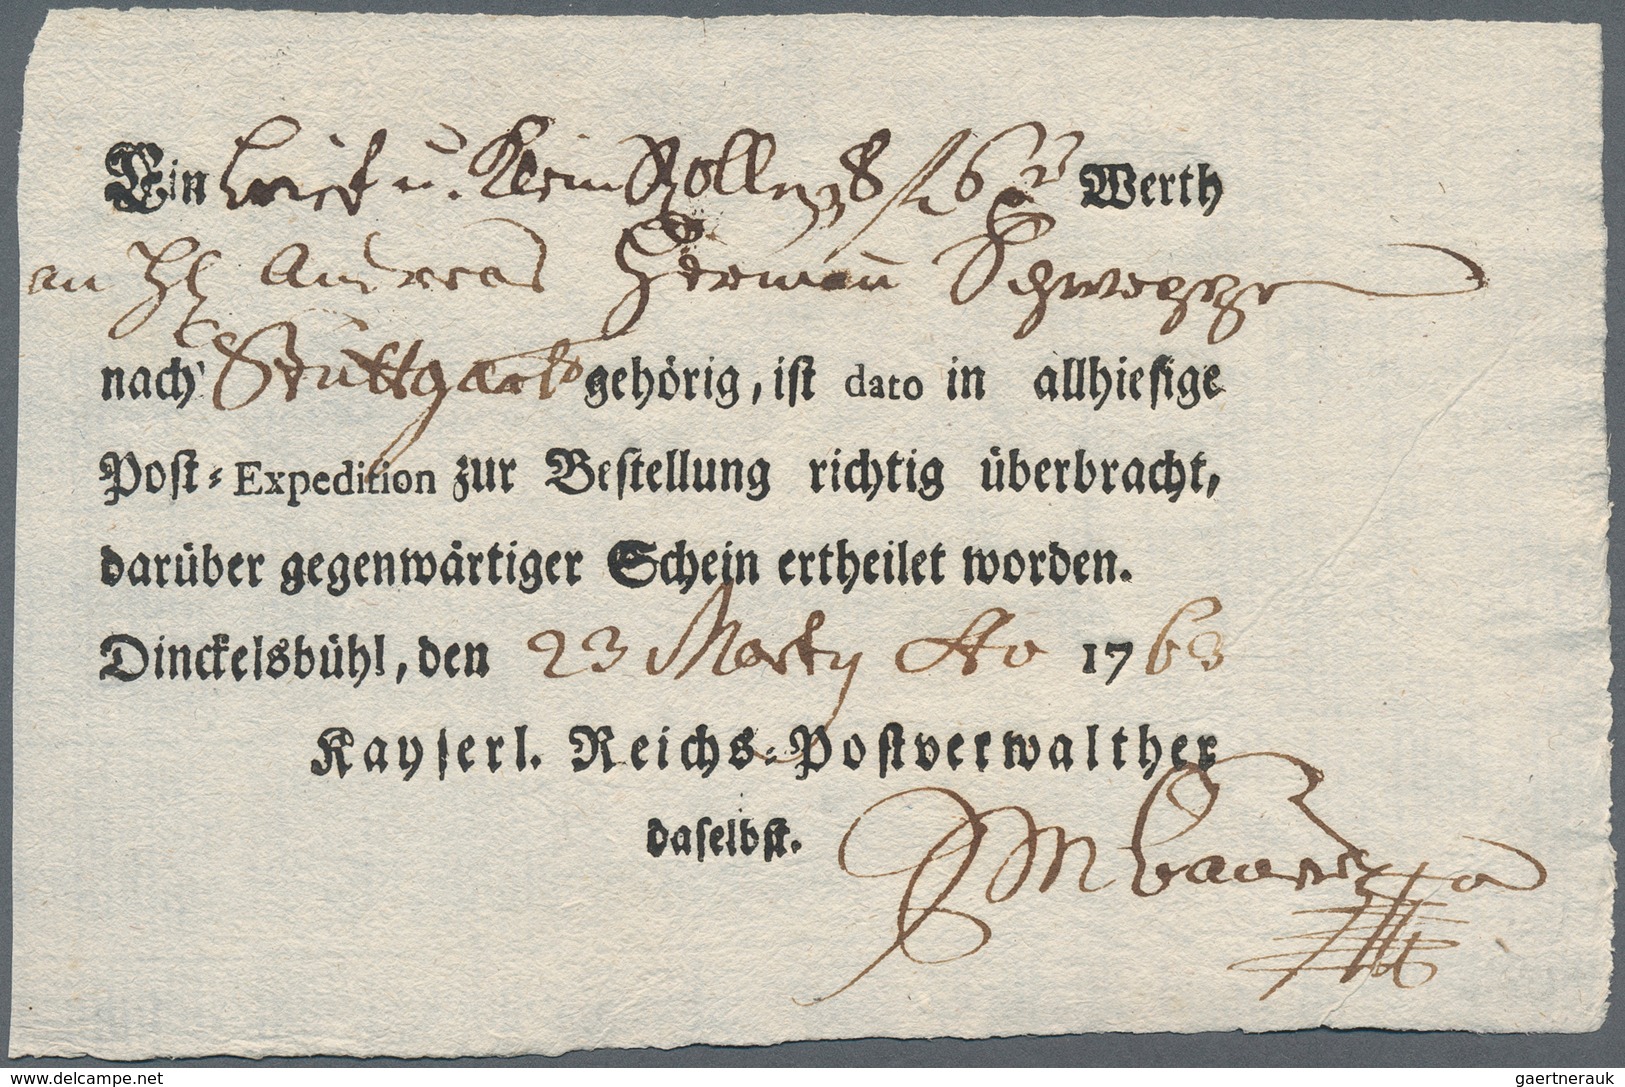 Ein brief u. klein Rollen Werth
an Andreas Herman Schweppe
nach Stuttgart gehörig, iſt dato in allhieſige
Poſt⸗Expedition zur Beſtellung richtig überbracht,
darüber gegenwärtiger Schein ertheilet worden.
Dinckelsbühl, den 23 Marty Ao 1763
Kayſerl. Reichs⸗Poſtverwalther
daſelbſt.
www.delcampe.net
gaertnerauk